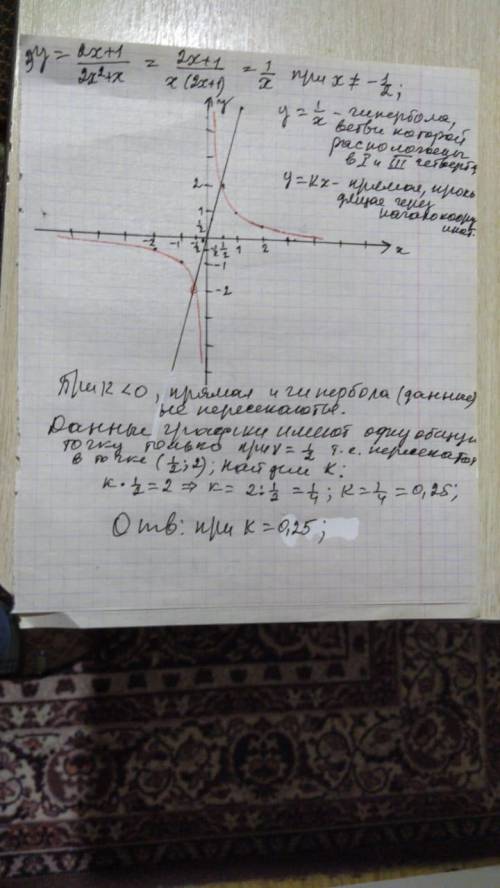 y = 2x+1 / 2x²+x = 2x+1 / x(2x+1) = 1/x при x ≠ -1/2;
y = 1/x - гипербола,
ветви которой
расположены
в I и III четверт.
y = kx - прямая, прохо
дящая через
начало коорд
инат.
y
2
1
1/2
-2 -1 -1/2 1/2 1 2 x
-1
-2
При k < 0, прямая и гипербола (данные)
не пересекаются.
Данные графики имеют одну общую
точку только при x = 1/2 т.е. пересекаются
в точке (1/2; 2); найдем k:
k · 1/2 = 2 ⇒ k = 2 : 1/2 = 1/4; k = 1/4 = 0,25;
Отв: при k = 0,25;